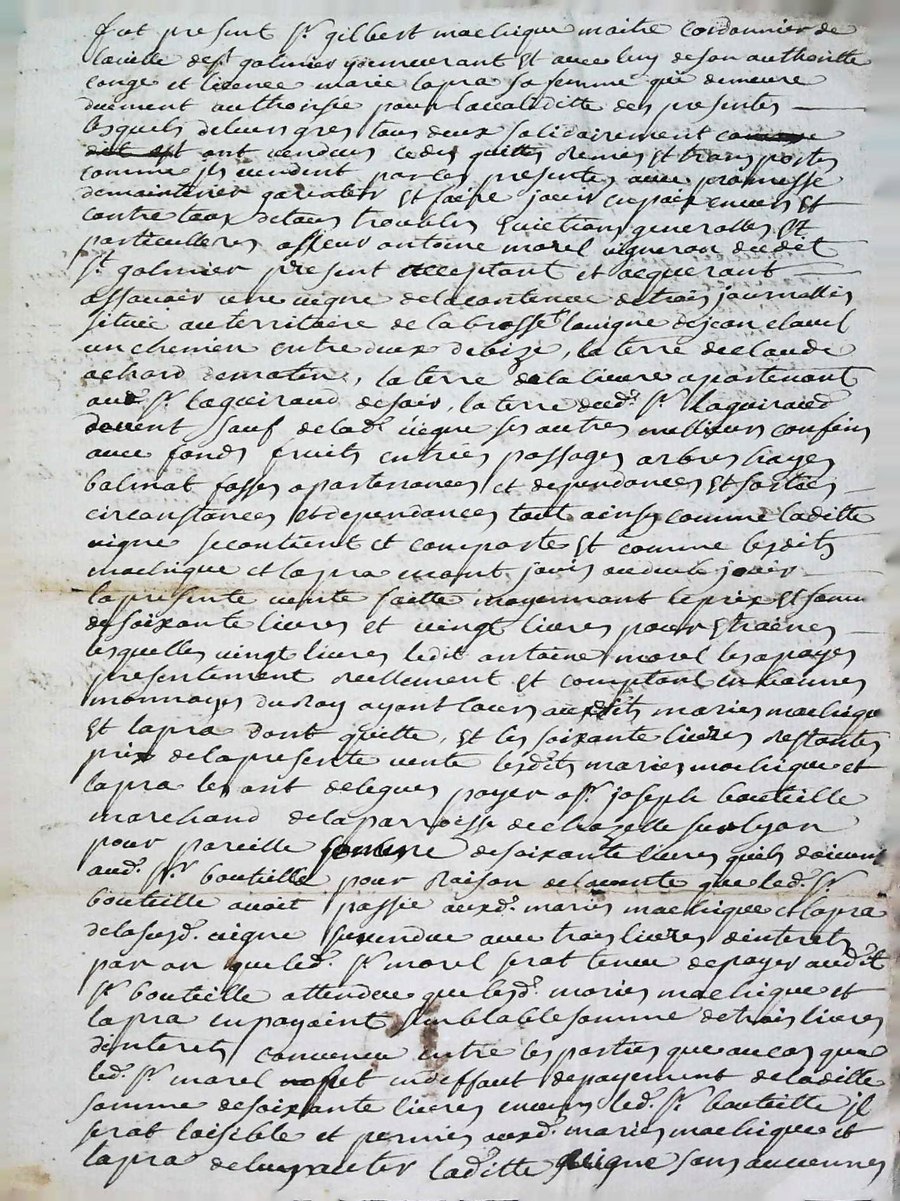 fut present Sr. gilbert machique maitre cordonnier de
la ville de St. galmier y demeurant et avec luy de son authoritté
conge et licence marie lapra sa femme qui demeure
duement authorisée pour la validitté des presentes
lesquels de leurs gres tous deux solidairement
ont vendus cedes quittes remis et transportes
comme ils vendent par ces presentes avec promesse
de maintenir garentir et faire jouir en paix envers et
contre tous de tous troubles evictions generalles et
particulleres a sieur antoine morel vigneron dudet
St. galmier present acceptant et acquerant
assavoir une vigne de la contenue de trois journallés
située au territoire de la brosse la vigne de jean clavel
un chemin entre deux de bize, la terre de claude
achard de matin, la terre de la livre apartenant
aud. Sr. laguiraud de soir, la terre dud. Sr. laguiraud
de vent sauf de lad. vigne ses autres meilleurs confins
avec fonds fruits entrées passages arbres hayes
balmat fosses apartenances et dependances et sorties
circonstances et dependances tout ainsy comme laditte
vigne se contient et comporte et comme lesdits
machique et lapra en ont jouis ou du le jouir
la presente vente faitte moyennant le prix et somme
de soixante livres et vingt livres pour etraines
lesquelles vingt livres ledit antoine morel les a payes
presentement reellement et comptant en bonnes
monnayes du Roy ayant cours auxdits maries machique
et lapra dont quitte, et les soixante livres restantes
prix de la presente vente lesdits maries machique et
lapra les ont delegues payer a Sr. joseph bouteille
marchand de la parroisse de chazelle sur lyon
pour pareille somme de soixante livres quils doivent
aud. Sr. bouteille pour raison de la vente que led. Sr.
bouteille avoit passée auxd. maries machique et lapra
de la susd. vigne survendue avec trois livres d'interets
par an que led. Sr. morel serat tenu de payer audit
Sr. bouteille attendu que lesd. maries machique et
lapra en payoint semblable somme de trois livres
d'interets convenu entre les parties que au cas que
led. Sr. morel fut in deffaut de payement de laditte
somme de soixante livres envers led. Sr. bouteille il
serat loisible et permis auxd. maries machique et
lapra de laditte vigne sans aucunnes